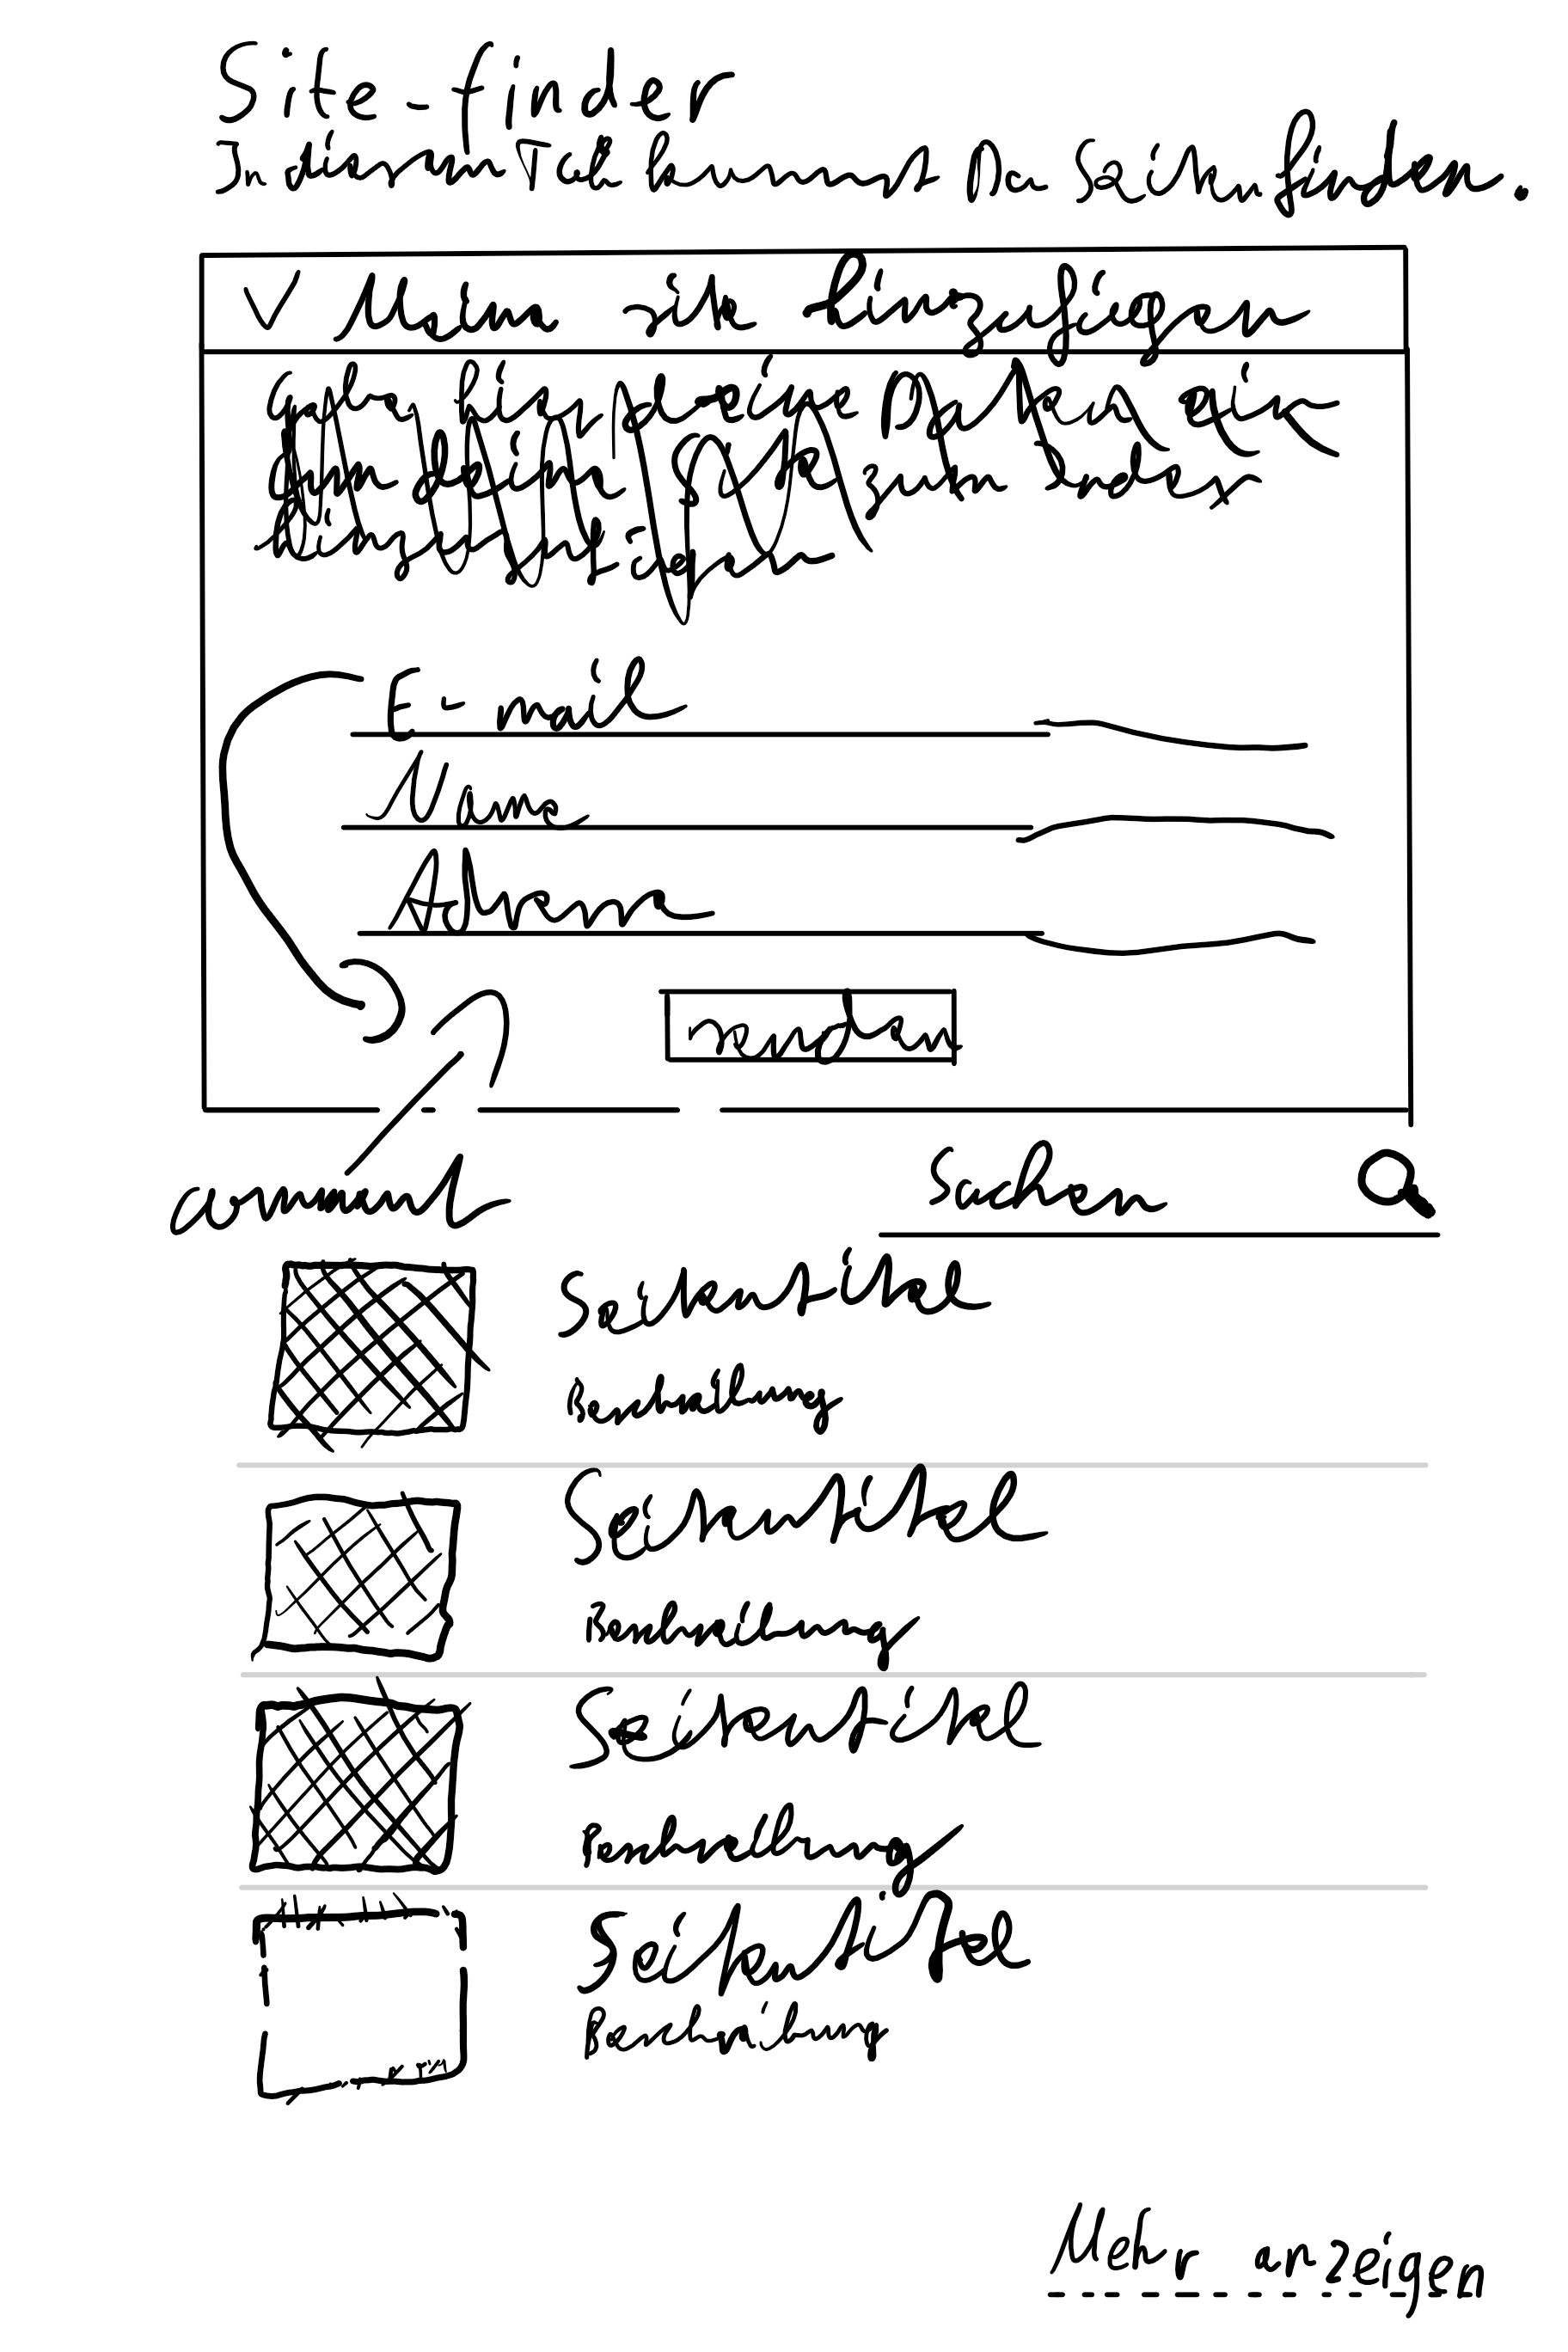 Site-finder
In diesem Tab kannst Du seiten finden.
Meine seite hinzufügen
gebe hier deine Daten ein
um deine seite zum Index
hinzuzufügen
E-mail
Name
Adresse
senden
Suchen
Seitentitel
Beschreibung
Seitentitel
Beschreibung
Seitentitel
Beschreibung
Seitentitel
Beschreibung
Mehr anzeigen